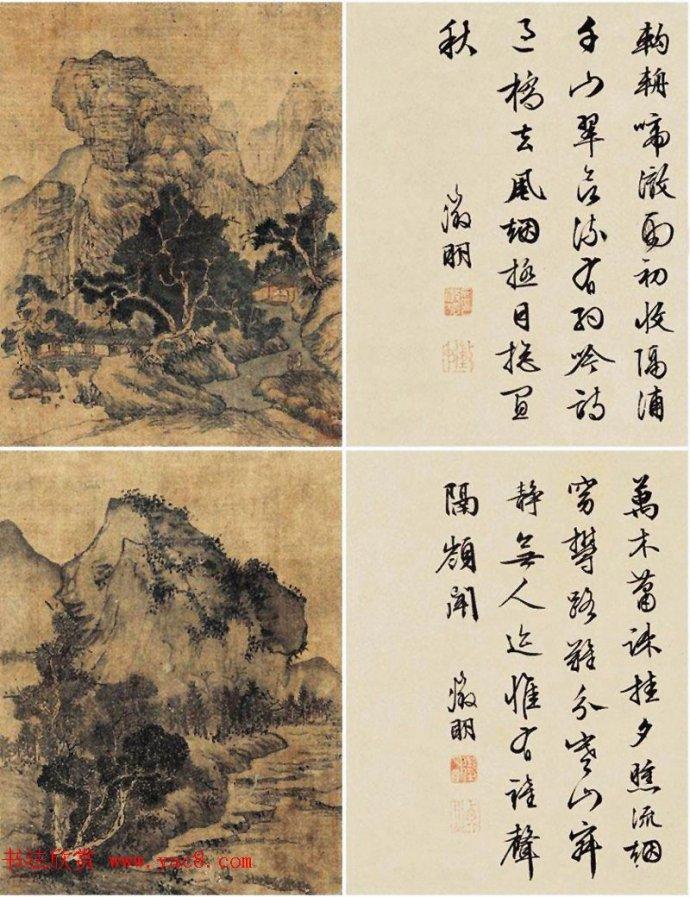 輈啼澈雨初收隔浦
千山翠欲流有約吟詩
過橋去風烟極目揔宜
秋
徵明
萬木蕭疎挂夕曛流烟
攀路難分山寂
靜無人迹惟有鐘聲
隔嶺聞
徵明
书法欣赏 www.yac8.com